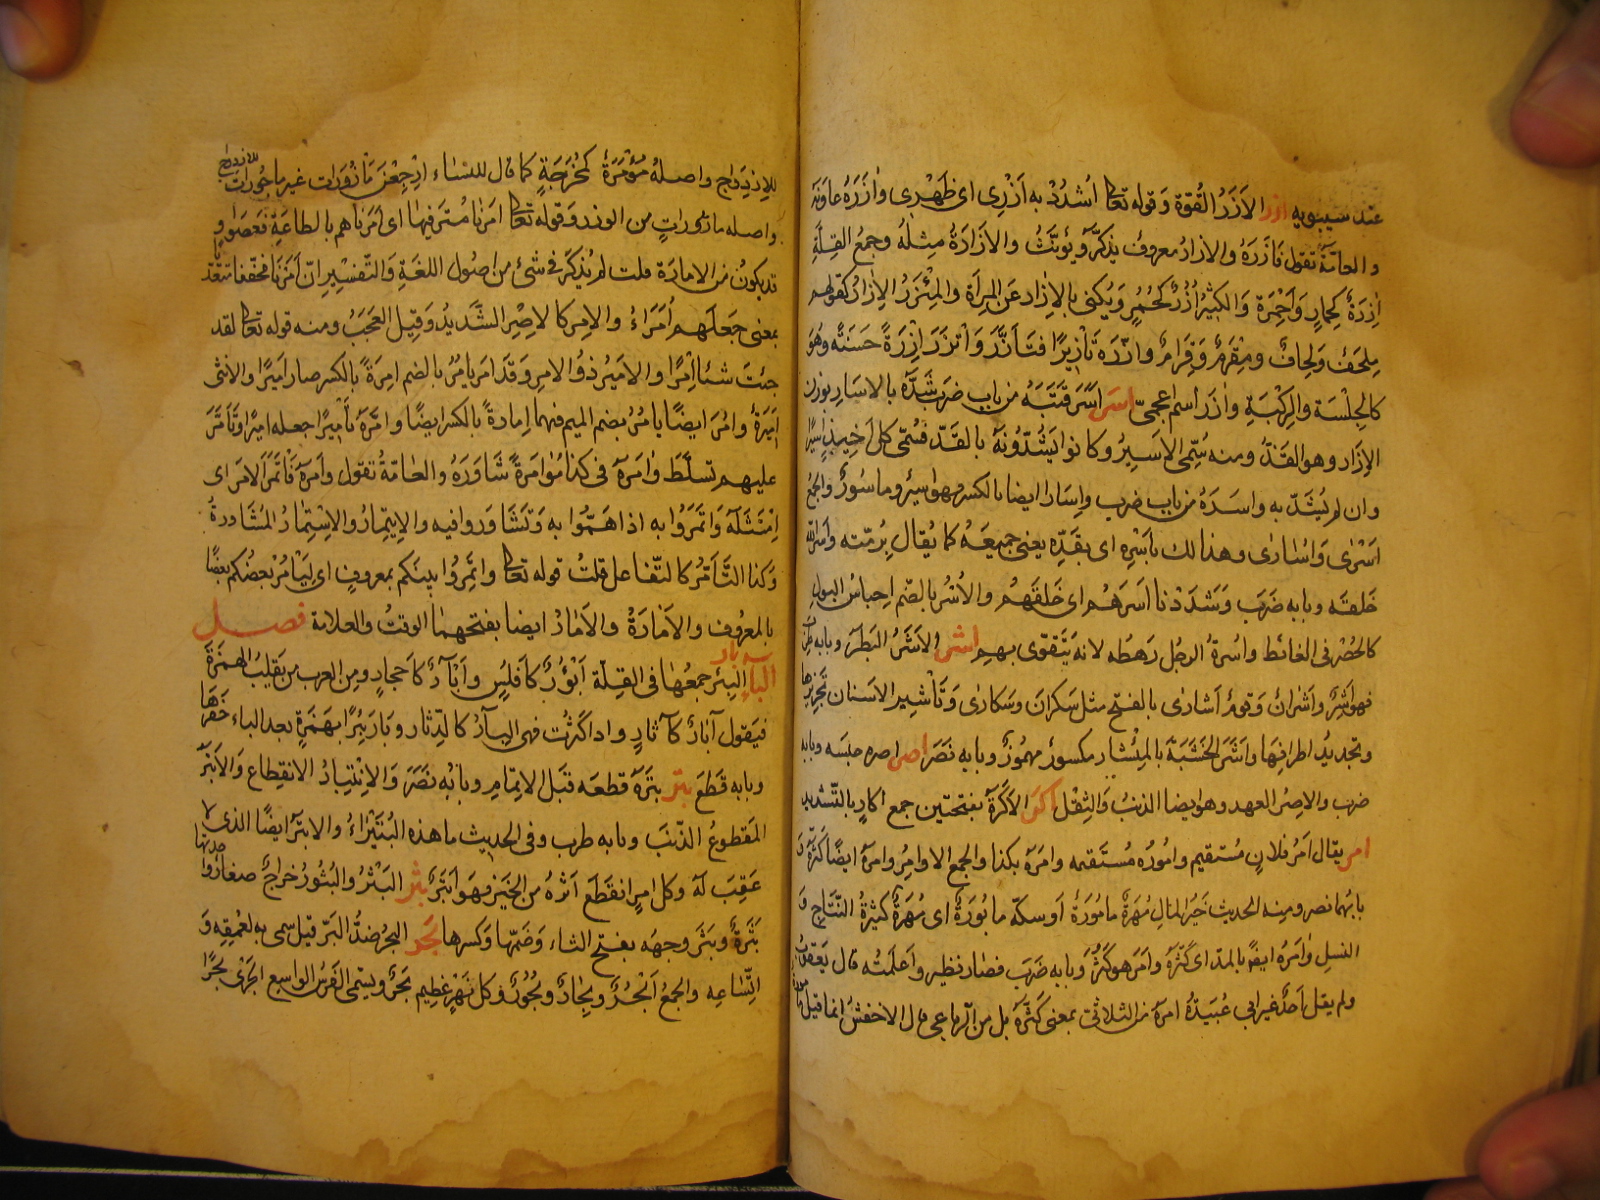 عند سيبويه ازر الاَزْرُ القُوّة وَقوله تعا اُشدُدْ به اَزْرِى اى ظَهْرِى وَاٰزَرَهُ عاوَنَه
والعامّةُ تقول وَازَرَهُ والازارُ معروف يذكَّر ويؤنّثُ والاِزَارَةُ مِثلُهُ وجمعُ القِلّةِ
اٰزِرَةٌ كحِمارٍ وَاَحْمِرَة وَالكثيرُ اُزُرٌ كحُمُرٍ وَيُكنى بالاِزار عَنِ المرأة والمِئْزَرُ الاِزارُ كقولهم
مِلحَفٌ وَلِحافٌ ومِقْرَمٌ وَقِرَامٌ وازّرَه تأزِيرًا فتَأَزَّرَ وَاْتزَرَ اِزرَةً حَسَنَةً وهُوَ
كالجِلْسَة والرِكْبَةِ واٰزَر اسم اعجمىّ اسر اَسَرَ قَتَبَهُ من باب ضرَب شَدَّه بالاسَارِ بوزن
الاِزَار وهو القَدّ ومنه سُمّى الاَسيرُ وكانوا يَشُدّونَهُ بالقَدّ فسُمّى كل اَخِيذٍ اسيرًا
وان لم يُشَدّ به واسَرَهُ من باب ضرب وَاِسَارا ايضا بالكسر فهو اسيرٌ وماسُورٌ والجمعُ
اَسْرٰى وَاُسَارٰى وهذا لك بأَسْرِهِ اى بقَدِّه يعنى جميعَهُ كما يُقالُ برُمّته وأسَرَهُ اللّٰه
خَلقَه وبابه ضَرَبَ وَشَدَدْنا اَسرَهُم اى خَلقَهُم والاُسْرُ بالضّم احتباسُ البول
كالحُصْرِ فى الغائط واُسْرةُ الرجُل رَهطُه لانه يَتَقوّى بهِم اشر الاَشَرُ البَطَرُ وبابه طرِبَ
فهو اَشِرٌ وَاَشْرانُ وَقومٌ اَشَارٰى بالفَتْح مثل سَكرانَ وسَكارى وَتأشير الاسنان تَحزِيزها
وتحديدُ اطرافِهَا واَشَرَ الخَشَبَةَ بالمِئْشار مكسورٌ مهموزٌ وبابه نَصَرَ اصر اصره حبسه وبابه
ضرب والاِصْرُ العهد وهو ايضا الذنبُ وَالثِقْل اكر الاَكَرَةُ بفتحتين جمع اكارٍ بالتّشديد
امر يقال اَمرُ فلانٍ مُستقيم وامُورُه مُستَقيمه وامَرَه بكذا والجمع الاوامِرُ وامرهُ ايضًا كثّرَهُ وَ
بابهُما نصر ومنه الحديث خَيرُ المال مُهرَةٌ مامُورَةٌ اَو سكّة مابُورَةٌ اى مُهرَةٌ كثيرةُ النّتاجِ وَ
النسلِ وٰامَرَهُ ايضًا بالمد اى كَثّرَهُ وأَمِرَ هو كَثُرَ وبابه ضَرَبَ فصار نظير واَعلَمتُه قال يَعقوبُ
ولم يقل اَحَدٌ غير ابى عُبَيدَةَ امرَهُ من الثلاثى بمعنى كَثَّرَهُ بل من الرباعى قال الاخفشُ انما قيل مامورة
للاِزدِوَاج واصلهُ مُؤْمَرَةٌ كمُخْرَجَةٍ كما قال للنساء ارْجِعْنَ مَأزُورَات غير ماجُورات للازدواج
واصله مَوزُوراتٍ من الوِزر وَقوله تعا امَرْنا مُترَفيهَا اى اَمَرْناهم بالطاعَةِ فعَصَوا و
قد يكُونُ من الامارَةِ قلت لم يُذكَر فى شئ من اصُول اللغَةِ وَالتّفسيرِ انّ اَمَرْنا مخففًا متعديًا
بمعنى جَعلهم اُمَرَاءَ والاِمرُ كالاِصْرِ الشَّديدُ وَقيل العَجَبُ ومنه قوله تعا لقد
جئت شئا اِمْرًا والاَميرُ ذُو الامرِ وَقدْ امَر يامُرُ بالضم امِرَةً بالكسر صار امِيرًا والانثى
اَميرَةٌ وامُرَ ايضًا يامُرُ بضم الميم فيهما اِمارةً بالكسر ايضًا وامَّرَهُ تأميرًا جعله اميرًا وتَأمَّرَ
عليهم تسلَّط وٰامرَهُ فى كذا مُؤامَرَةً شاوَرَهُ والعامّةُ تقول وامرَهُ فَاتْمَرَ الامرَ اى
اِمْتَثَلَهُ وَاتمَرُوا به اذا هَمّوا به وَتشاوَروا فيه والاِيتِمارُ والاِسْتِيمارُ المُشَاورةُ
وكذا التَّأمُّرُ كالتّفاعل قلتُ قوله تعا واتَمِرُوا بينَكم بمعروفٍ اى لِيَامُرْ بعضُكم بعضًا
بالمعروف والاَمَارَةُ والاَمَارُ ايضا بفتحهما الوقتُ والعلامة فصل
الباء بار البِئرُ جمعُها فى القِلّة اَبْؤُرٌ كافلُسٍ واَبْآرٌ كاَحجارٍ ومن العرب من يَقلِبُ الهمزة
فيَقول آبارٌ كآثارٍ واذا كَثُرَت فهى البِئَارُ كالدِّثار وبَارَ بِئْرًا بهَمزَةٍ بعد الباء حَفَرها
وبابه قَطَعَ بتر بتَرَهُ قطعه قبَل الاِتمامِ وبابُه نصَرَ وَالاِنْبِتَارُ الانقِطاع وَالاَبْتَرُ
المَقطوعُ الذّنَب وبابه طرب وفى الحديث ما هذه البُتَيْرَاءُ والابتَرُ ايضًا الذى لا
عَقِبَ لَهُ وكل امرٍ انقَطَع اَثرُهُ من الخيرِ فهو اَبتَرُ بثر البَثْرُ والبُثُورُ خراجٌ صغارٌ واحدتها
بَثْرةٌ وبَثَرَ وجهُه بفتح الثاء وَضَمّها وَكسرها بحر البحرُ ضدُّ البَرّ قيل سمى به لعُمْقِه وَ
اتّساعِه والجمعُ اَبْحُرٌ وبِحارٌ وبُحُورٌ وكل نَهْرٍ عَظِيمٍ بَحرٌ ويسَمّى الفَرَسُ الواسِع الجَرْىِ بحرًا